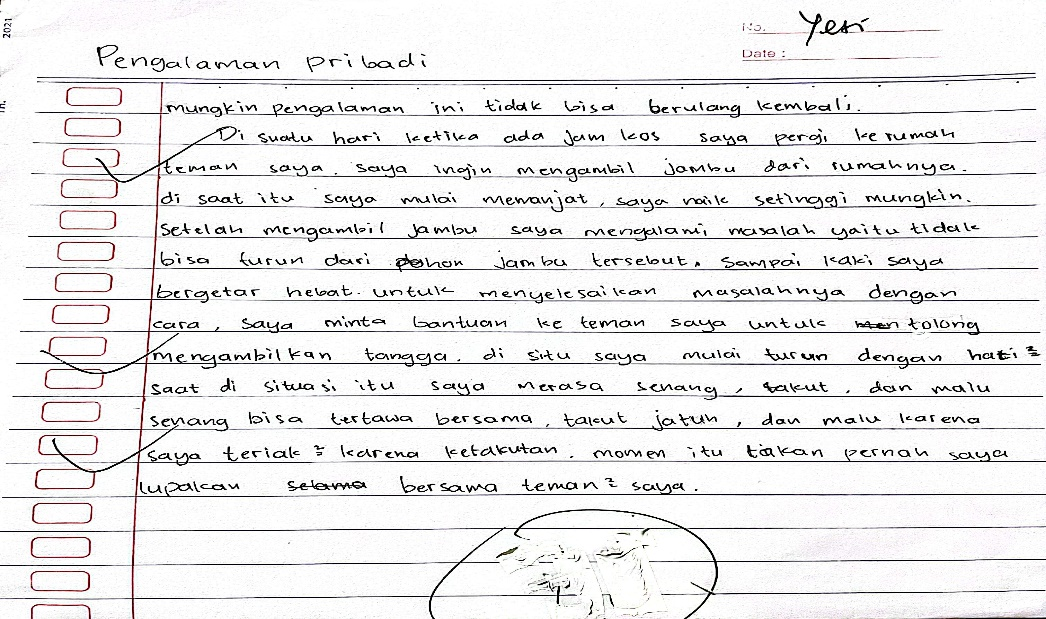 2021
No. Yesi
Date :
Pengalaman pribadi
mungkin pengalaman ini tidak bisa berulang kembali.
Di suatu hari ketika ada jam kos saya pergi ke rumah
teman saya. saya ingin mengambil jambu dari rumahnya.
di saat itu saya mulai memanjat, saya naik setinggi mungkin.
Setelah mengambil jambu saya mengalami masalah yaitu tidak
bisa turun dari pohon jambu tersebut. Sampai kaki saya
bergetar hebat. untuk menyelesaikan masalahnya dengan
cara, saya minta bantuan ke teman saya untuk men tolong
mengambilkan tangga. di situ saya mulai turun dengan hati²
saat di situasi itu saya merasa senang, takut, dan malu
senang bisa tertawa bersama, takut jatuh, dan malu karena
saya teriak² karena ketakutan. momen itu takan pernah saya
lupakan selama bersama teman² saya.